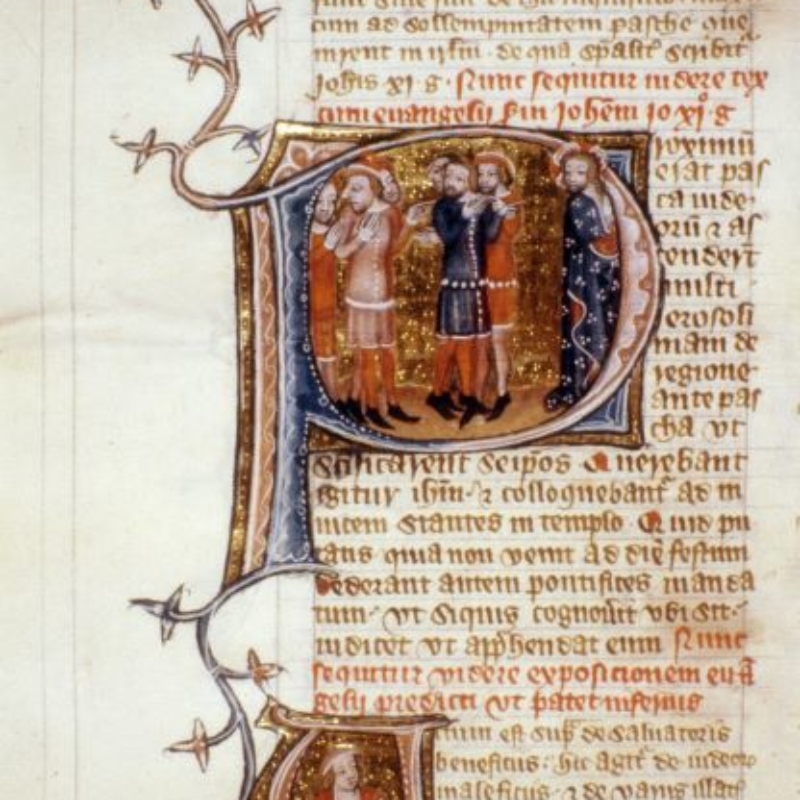 cum ad sollempnitatem pasche que
Johis xi g. Nunc sequitur videre tex
tum euangelii s'm Johem Jo xi° g
Proximū
erat pas
ca iude
orū ⁊ as
cenderūt
multi
ierosoli
mam de
regione
ante pas
cha ut
scificarent seip̄os Querebant
igitur ihm ⁊ colloquebant' ad in
uicem stantes in templo Quid pu
tatis quia non venit ad diē festum
Dederant autem pontifices manda
tum ut siquis cognouit ubi sit
indicet ut app̄hendat eum Nunc
sequitur videre expositionem euā
gelii predicti ut patet inferius
est sup' de saluatoris
beneficiis hic agit' de iudeor
maleficiis ⁊ de variis illat